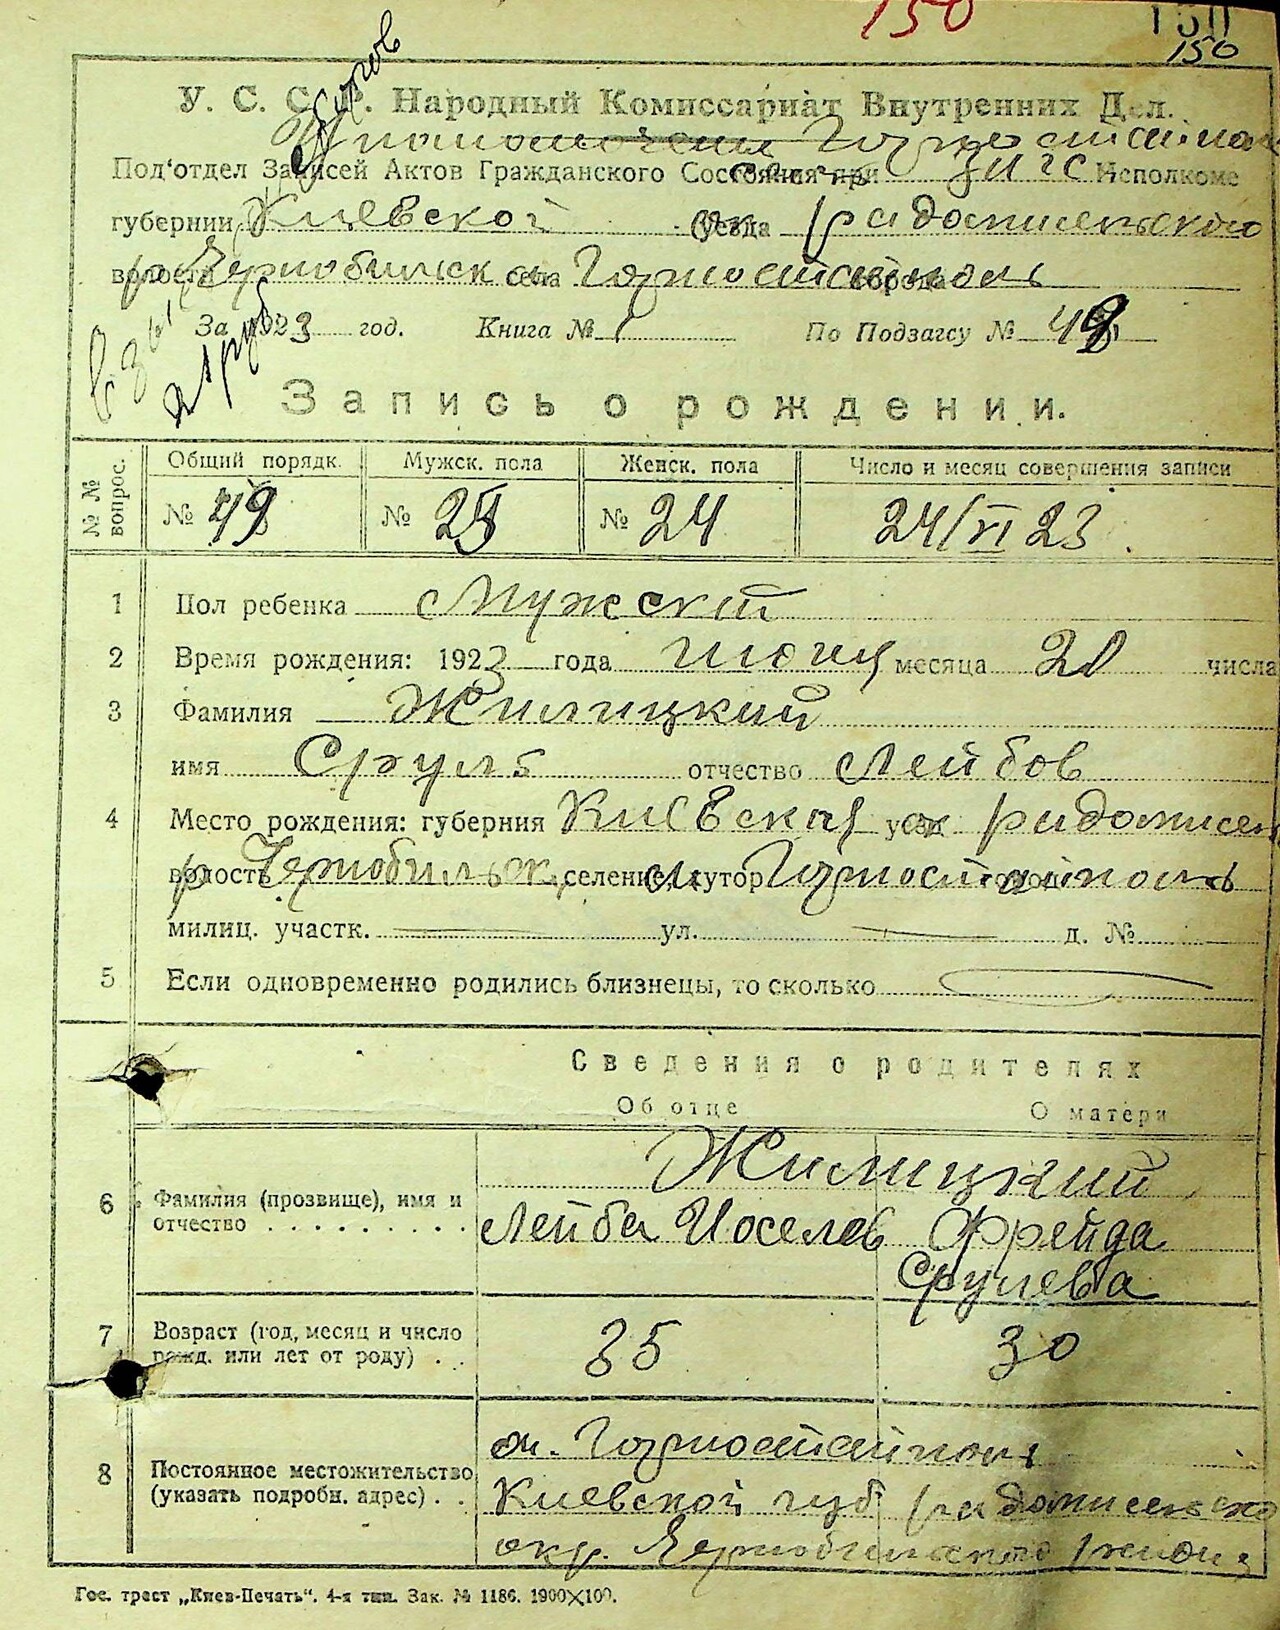 150
150
У. С. С. Р. Народный Комиссариат Внутренних Дел.
Горностайпол
Под'отдел Записей Актов Гражданского Состояния при ЗАГС Исполкоме
губернии Киевской уезда Радомисльского
волости Чернобильск села Горностайполь города
За 1923 год. Книга № 1 По Подзагсу № 49
Взыс
1 руб
Запись о рождении.
№№ вопрос. Общий порядк. Мужск. пола Женск. пола Число и месяц совершения записи
№ 49 № 25 № 24 24/VI 23.
1 Пол ребенка Мужский
2 Время рождения: 1923 года июня месяца 20 числа
3 Фамилия Жилицкий
имя Сруль отчество Лейбов
4 Место рождения: губерния Киевская уезд Радомисел
волость Чернобильск. селение, хутор м. Горностайполь
милиц. участк. ул. д. №
5 Если одновременно родились близнецы, то сколько
Сведения о родителях
Об отце О матери
Жилицкий
6 Фамилия (прозвище), имя и отчество . . . . . . . . . Лейба Иоселев Фрейда Срулева
7 Возраст (год, месяц и число рожд. или лет от роду) . . . 35 30
8 Постоянное местожительство (указать подробн. адрес) . . м. Горностайполь
Киевской губ Радомисльско
окр. Чернобильского района
Гос. трест „Киев-Печать“. 4-я тип. Зак. № 1186. 1900X100.